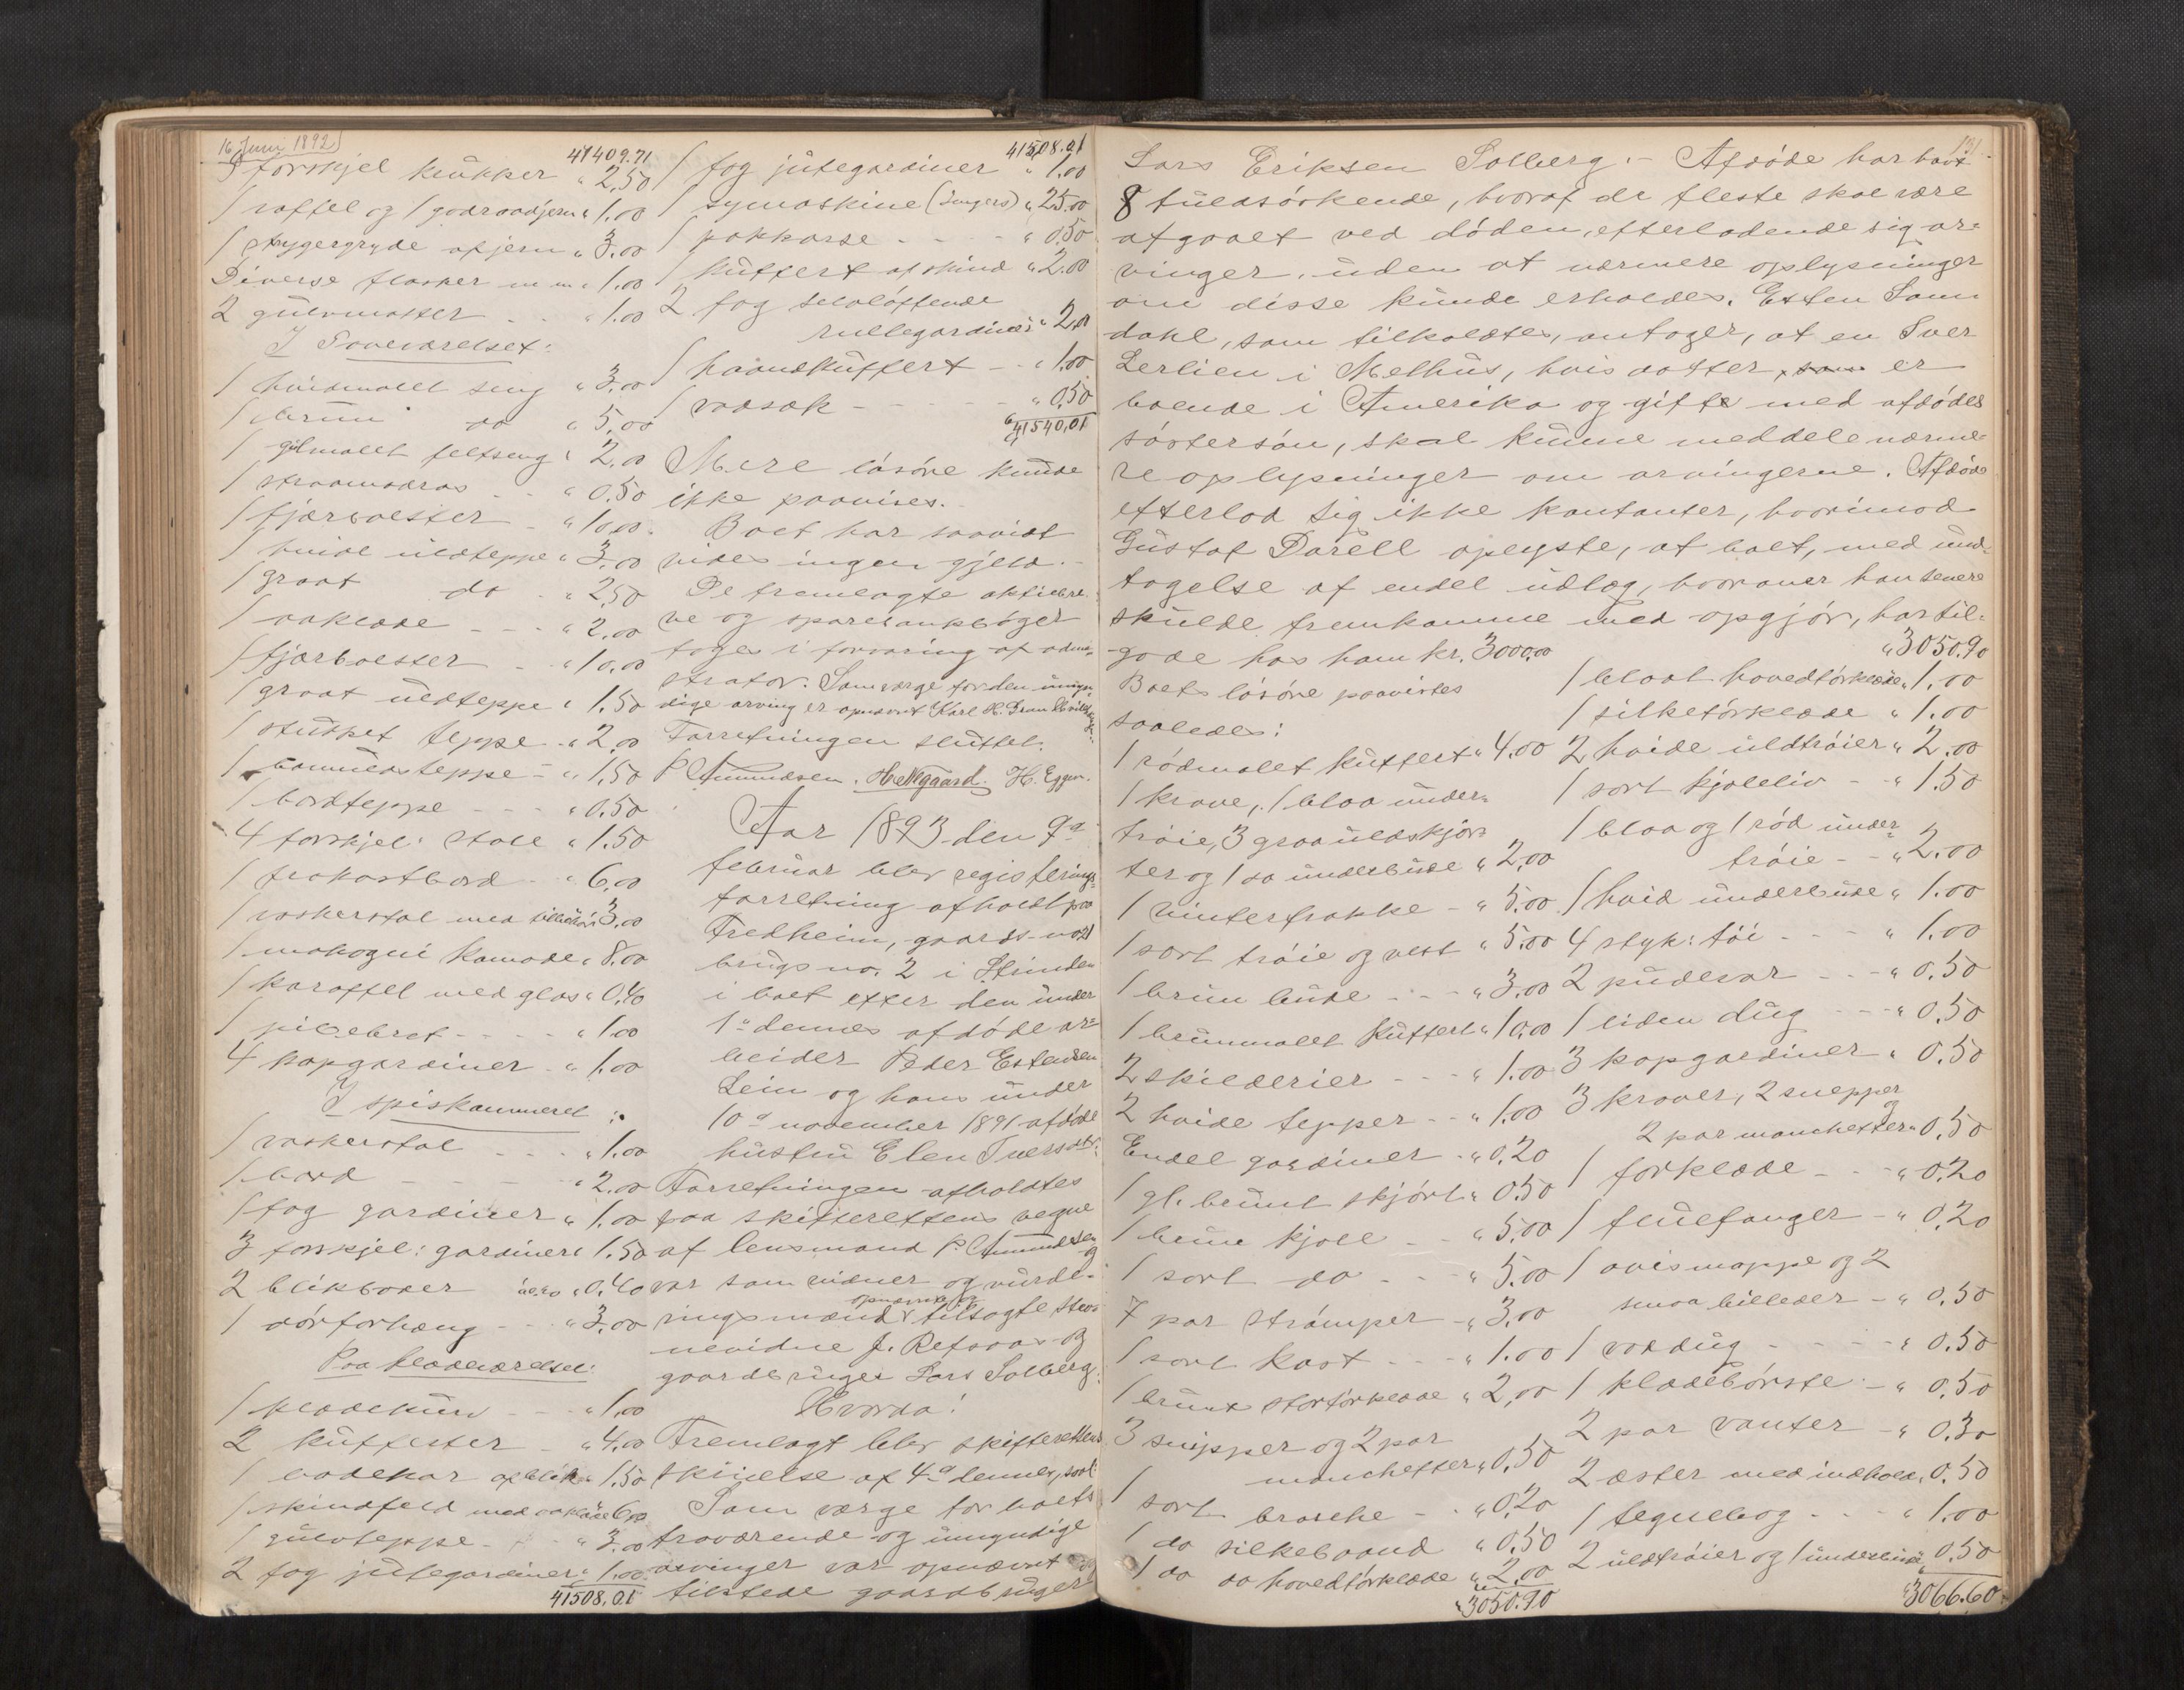 16 Juni 1892
41409.71
3 forskjel krukker " 2,50
1 vaffel og 1 godraadjern " 1.00
1 strygergryde af jern " 3.00
Diverse flasker m m " 1.00
2 gulvmatter - - " 1.00
I Soveværelset:
1 hvidmalet seng " 3.00
1 brun do " 5,00
1 gulmalet feltseng " 2,00
1 straamadras - - " 0.50
1 fjærbolster - " 10.00
1 hvidt uldteppe " 3,00
1 graat do - " 2,50
1 aaklæde - - - " 2,00
1 fjærbolster - " 10,00
1 graat uldteppe " 1,50
1 stukket teppe - " 2,00
1 bomuldsteppe - " 1,50
1 bordteppe - - - " 0.50
4 forskjel: stole " 1.50
1 frokostbord - " 6,00
1 vaskerstol med tilbehør " 3,00
1 mahogni komode " 8.00
1 karaffel med glas " 0,40
1 pillebret - - - - " 1.00
4 kapgardiner - " 1.00
I spiskammeret:
1 vaskerstol - - - " 1.00
1 bord - - - - " 2.00
1 fag gardiner " 1.00
3 forskjel: gardiner " 1.50
2 blikboxer " 0,40
1 dørforhæng - - " 3,00
Paa klædeværelset:
1 klædekurv - - " 1.00
2 kufferter - " 4,00
1 badekar af blik " 1.50
1 skindfeld med aaklæde " 6,00
1 gulvteppe - - " 3.00
2 fag jutegardiner " 1.00
41508,01
41508.01
1 fag jutegardiner " 1.00
1 symaskine (Singers) " 25.00
1 pakkasse - - - " 0,50
1 kuffert af skind " 2.00
2 fag selvløftende
rullegardiner " 2,00
1 haandkuffert - - " 1.00
1 vadsæk - - - - " 0,50
41540,01
Mere løsøre kunde
ikke paavises.
Boet har saavidt
vides ingen gjeld. -
De fremlagte aktiebre-
ve og sparebankbøger
toges i forvaring af admi-
strator. Som verge for den umyn-
dige arving er opnævnt Karl H.
Forretningen sluttet.
P Amundsen. H. Nygaard. H. Eggen.
Aar 1893 den 9de
februar blev registrerings-
forretning afholdt paa
Fredheim, gaards-no
brugs no. 2 i Strinden
i boet efter den under
1ste dennes afdøde ar-
beider Peder Estensen
Lein og hans under
10de november 1891 afdøde
hustru Elen Iversdtr.
Forretningen afholdtes
paa skifterettens vegne
af lensmand P. Amundsen
og
var som vidner og vurde-
opnævnte og
ringsmænd tilsagte stev-
nevidne J. Refsaas og
gaardbruger Lars Solberg.
Hvorda!
Fremlagt blev skifterettens
skrivelse af 4de dennes, saal.
Som verge for boets
fraværende og umyndige
arvinger var opnævnt og
tilstede gaardbruger
191.
Lars Eriksen Solberg. - Afdøde har havt
8 fuldsøskende, hvoraf de fleste skal være
afgaaet ved døden, efterladende sig ar-
vinger, uden at nærmere oplysninger
om disse kunde erholdes. Esten Sem
dahl, som tilkaldtes, antager, at en Iver
Lerlien i Melhus, hvis datter, som er
boende i Amerika og gift med afdødes
søstersøn, skal kunne meddele nærme-
re oplysninger om arvingerne. Afdøde
efterlod sig ikke kontanter, hvorimod
Gustaf Darell oplyste, at boet, med und-
tagelse af endel udlæg, hvorover han senere
skulde fremkomme med opgjør, har til-
gode hos ham kr. 3000,00
Boets løsøre paavistes
saaledes:
1 rødmalet kuffert " 4.00
1 krave, 1 blaa under-
trøie, 3 graa uldskjor-
ter og 1 do underbukse " 2,00
1 vinterfrakke - " 5.00
1 sort trøie og vest " 5.00
1 brun bukse - - - " 3.00
1 brunmalet kuffert " 10.00
2 skilderier - - - " 1.00
2 hvide tepper - - " 1.00
Endel gardiner - " 0,20
1 gl. brunt skjørt " 0.50
1 brun kjole - - " 5,00
1 sort do - - - " 5.00
7 par strømper - " 3,00
1 sort kast - - - " 1.00
1 brunt stortørklæde " 2,00
3 snipper og 2 par
manchetter " 0,50
1 sort brosche - - " 0,20
1 do silkebaand " 0,50
1 do do hovedtørklæde " 2,00
" 3050.90
" 3050.90
1 blaat hovedtørklæde " 1.00
1 silketørklæde " 1.00
2 hvide uldtrøier " 2.00
1 sort kjoleliv - - " 1.50
1 blaa og 1 rød under-
trøie - - " 2.00
1 hvid underbukse " 1.00
4 styk: tøi - - - " 1.00
2 pudevar - - - " 0.50
1 liden dug - - - " 0.50
3 kapgardiner " 0.50
3 kraver, 2 snepper
og
2 par manchetter " 0,50
1 forklæde - - - " 0.20
1 fluefanger - " 0,20
1 avismappe og 2
smaa billeder - " 0.50
1 voxdug - - - - " 0.50
1 klædebørste - " 0,50
2 par vanter - " 0.30
2 æsker med indhold " 0.50
1 tegnebog - - - " 1.00
2 uldtrøier og 1 underbukse " 0.50
" 3066.60